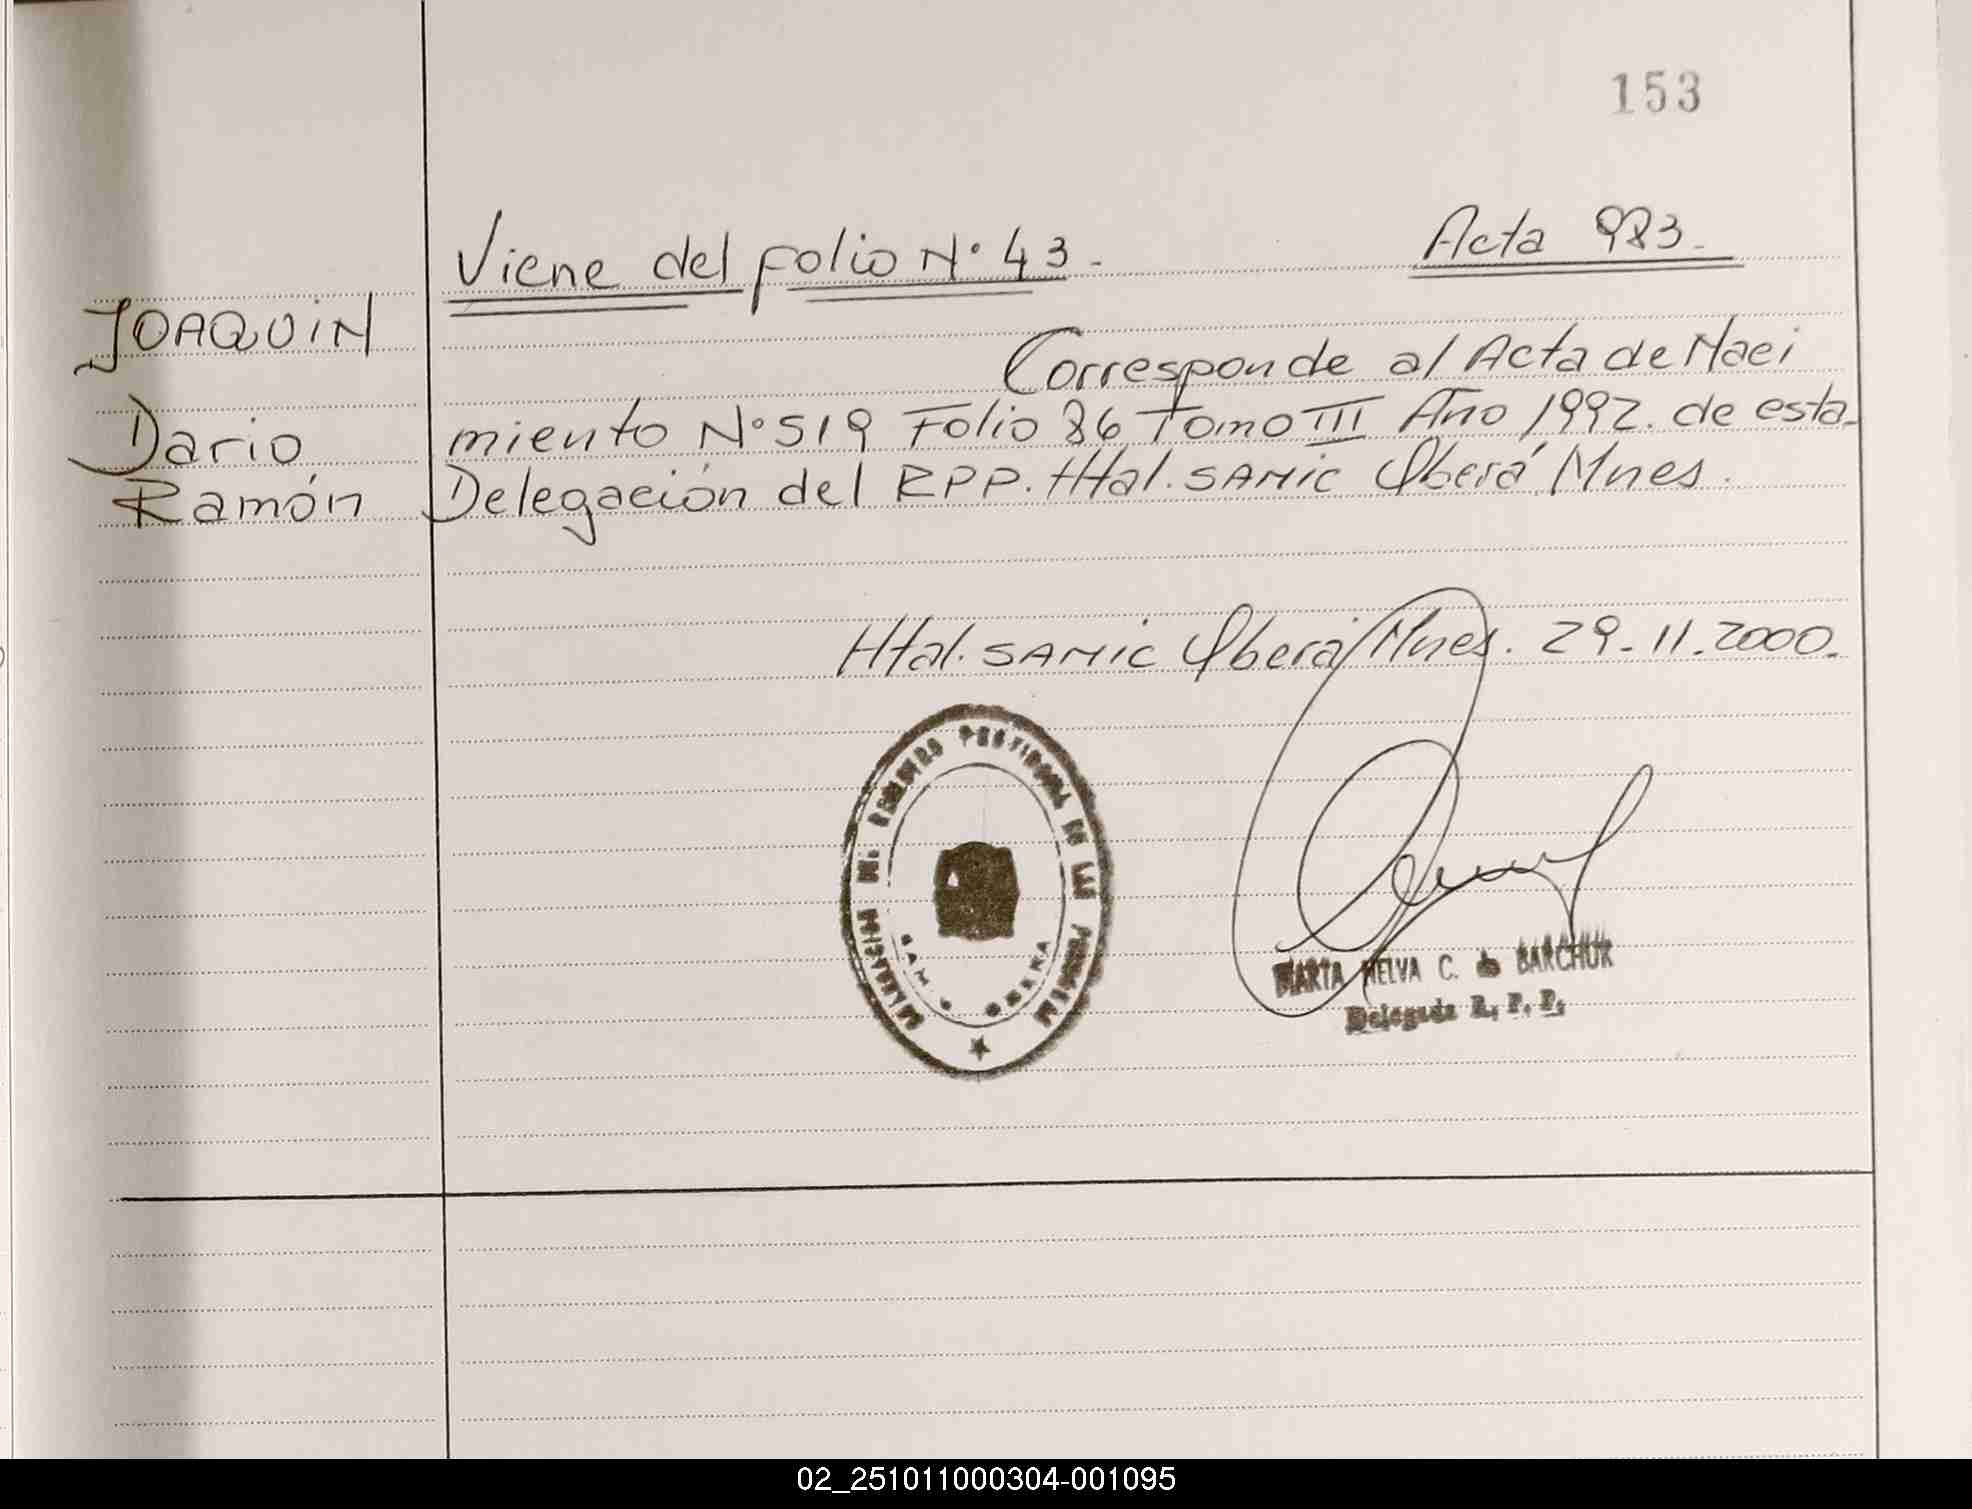 153
Viene del folio N° 43.- Acta 983.-
JOAQUIN
Corresponde al Acta de Naci
Dario
miento N° 519 Folio 86 Tomo III Año 1992. de esta
Ramón
Delegación del RPP. Htal. SAMIC Oberá Mnes.
Htal. SAMIC Oberá Mnes. 29-11.2000.
PROVINCIAL DE LAS PERSONAS
SAMIC OBERA
MARTA NELVA C. de BARCHUK
Delegada R. P. P.
02_251011000304-001095